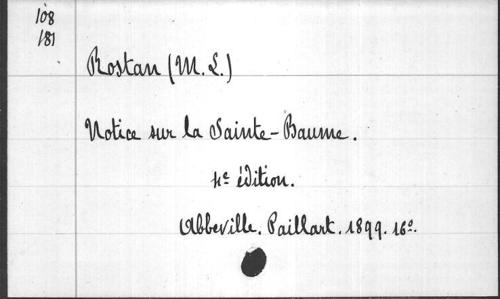 108
181
Rostan (M. L.)
Notice sur la Sainte-Baume.
4e édition.
Abbeville. Paillart. 1899. 16º.